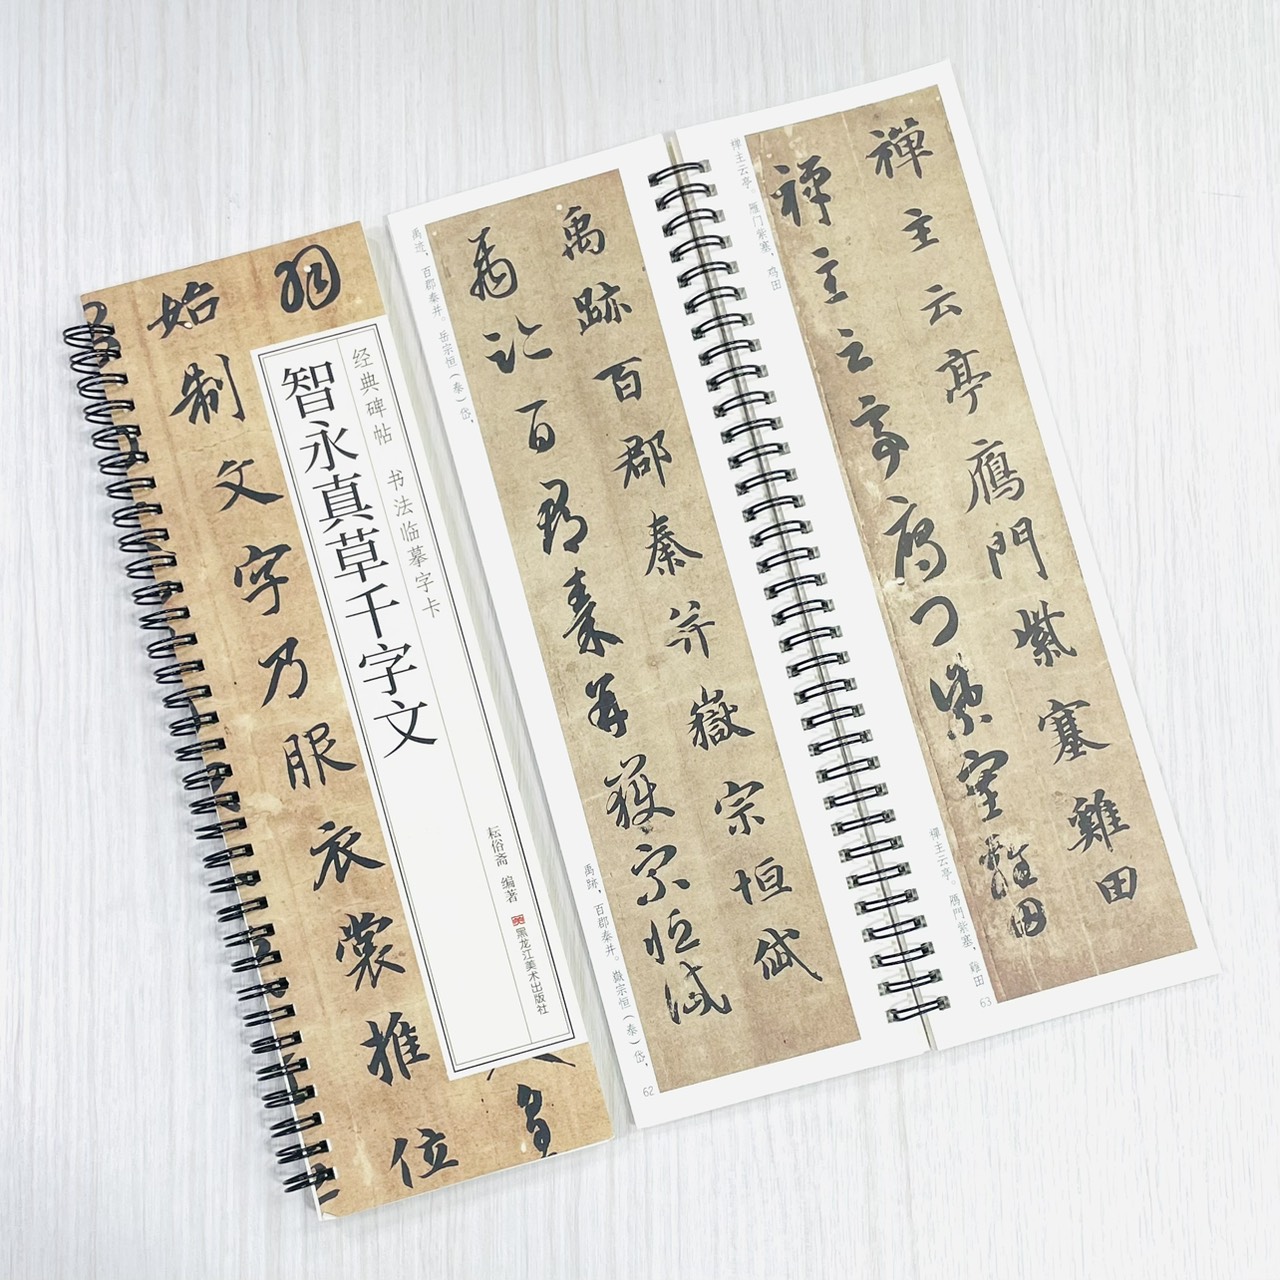 羽
始
制文字乃服衣裳推位
经典碑帖 书法临摹字卡
智永真草千字文
耘俗斋 编著
黑龙江美术出版社
禹跡百郡秦并嶽宗恒岱
禹跡百郡秦并嶽宗恒岱
禹迹，百郡秦并。岳宗恒（泰）岱，
禹跡，百郡秦并。嶽宗恒（泰）岱，
62
禪主云亭鴈門紫塞雞田
禪主云亭鴈門紫塞雞田
禅主云亭。雁门紫塞，鸡田
禪主云亭。鴈門紫塞，雞田
63